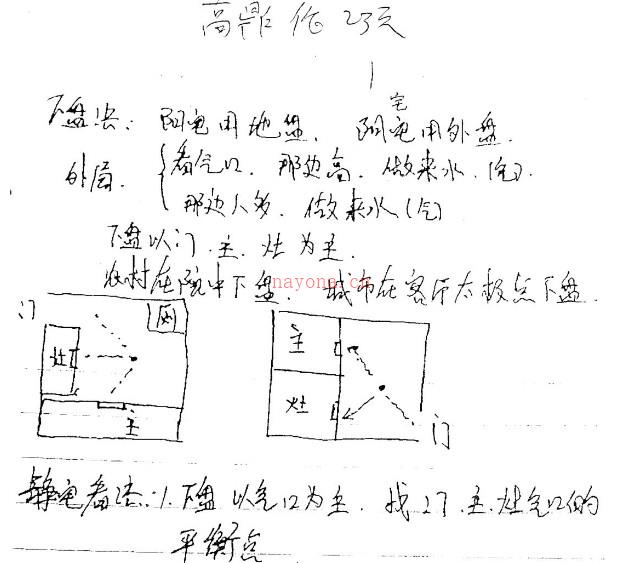 高鼎 作 23天
宅
下盘法: 阴宅用地盘. 阳宅用外盘.
外局. 看气口. 那边高. 做来水.(气)
那边人多. 做来水(气)
下盘以门.主.灶为主.
农村在院中下盘. 城市在客厅太极点下盘.
nayona.cn
门
灶
主
主
灶
门
静宅看法: 1. 下盘以气口为主. 找出门.主.灶气口的
平衡点